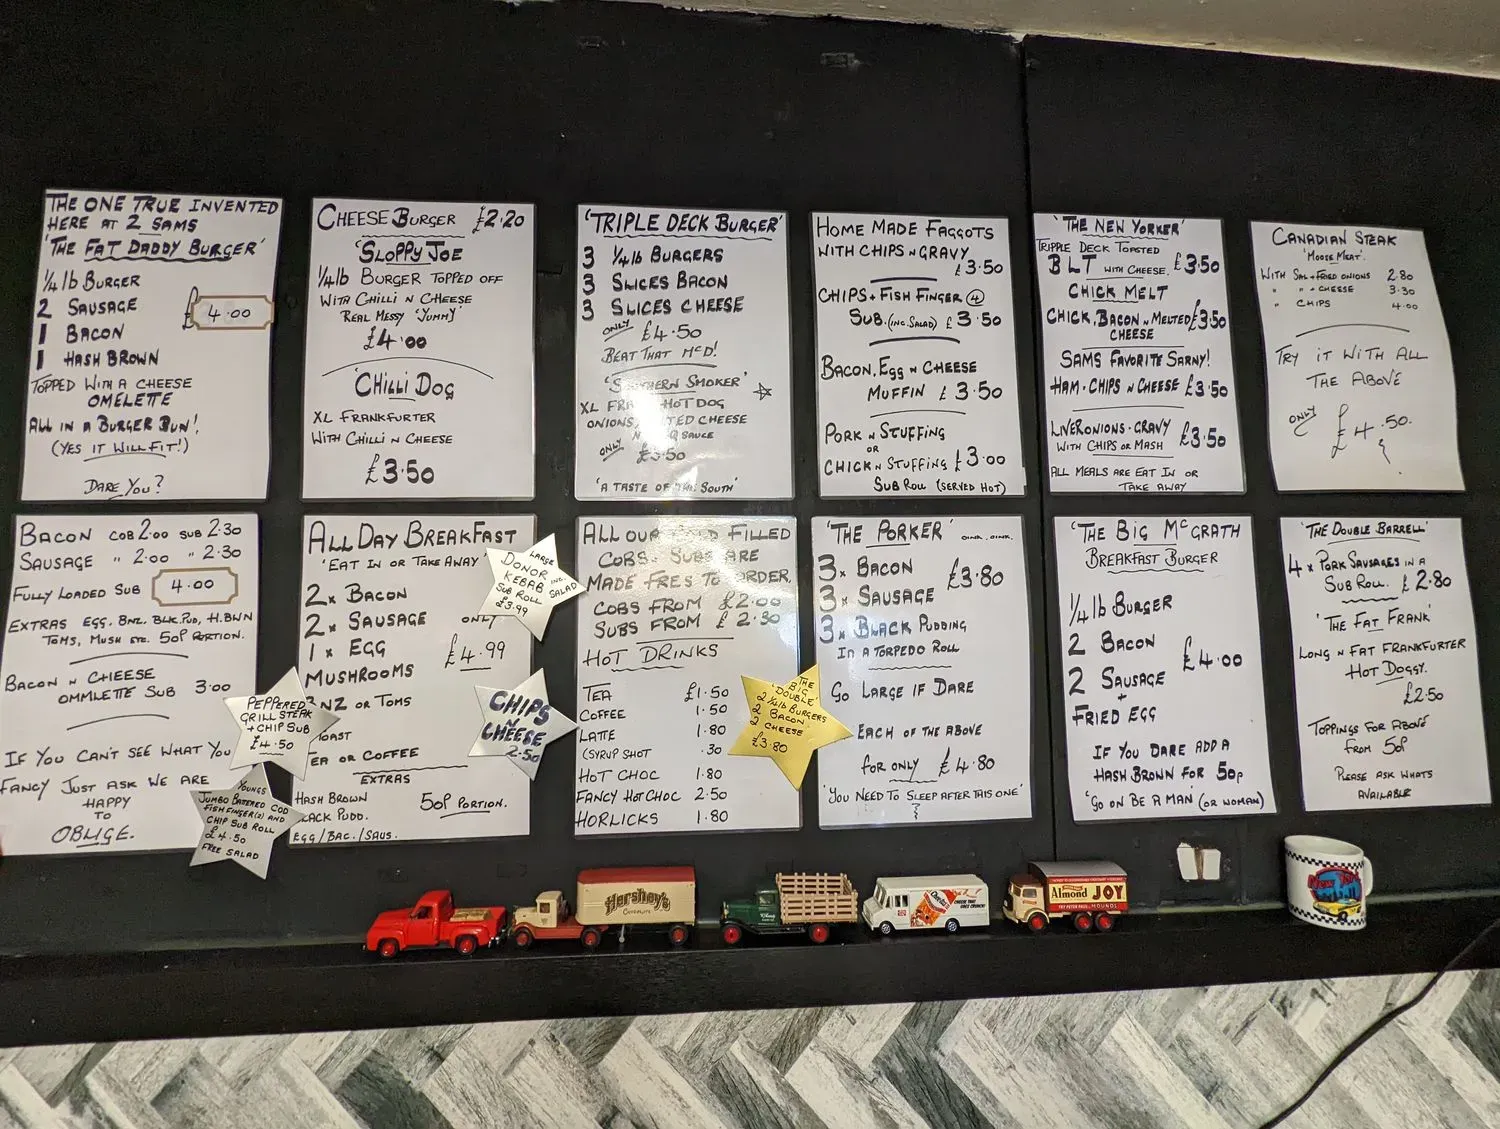 THE ONE TRUE INVENTED
HERE AT 2 SAMS
'THE FAT DADDY BURGER'
1/4 lb BURGER
2 SAUSAGE
£ 4.00
1 BACON
1 HASH BROWN
TOPPED WITH A CHEESE
OMELETTE
ALL IN A BURGER BUN!,
(YES IT WILL FIT!)
DARE YOU?
CHEESE BURGER £2.20
'SLOPPY JOE
1/4 lb BURGER TOPPED OFF
WITH CHILLI N CHEESE
REAL MESSY 'YUMMY'
£4.00
'CHILLI DOG
XL FRANKFURTER
WITH CHILLI N CHEESE
£3.50
'TRIPLE DECK BURGER'
3 1/4 lb BURGERS
3 SLICES BACON
3 SLICES CHEESE
ONLY £4.50
BEAT THAT McD!
'SOUTHERN SMOKER'
XL FRANK HOT DOG
ONIONS, MELTED CHEESE
N BBQ SAUCE
ONLY £3.50
'A TASTE OF THE SOUTH'
HOME MADE FAGGOTS
WITH CHIPS N GRAVY
£3.50
CHIPS + FISH FINGER (4)
SUB. (INC. SALAD) £3.50
BACON, EGG N CHEESE
MUFFIN £3.50
PORK N STUFFING
OR
CHICK N STUFFING £3.00
SUB ROLL (SERVED HOT)
'THE NEW YORKER'
TRIPPLE DECK TOASTED
BLT WITH CHEESE. £3.50
CHICK MELT
CHICK, BACON N MELTED £3.50
CHEESE
SAMS FAVORITE SARNY!
HAM - CHIPS N CHEESE £3.50
LIVER ONIONS - GRAVY
WITH CHIPS OR MASH £3.50
ALL MEALS ARE EAT IN OR
TAKE AWAY
CANADIAN STEAK
'MOOSE MEAT'.
WITH SAL + FRIED ONIONS 2.80
" " + CHEESE 3.30
" CHIPS 4.00
TRY IT WITH ALL
THE ABOVE
ONLY £4.50.
BACON COB 2.00 SUB 2.30
SAUSAGE " 2.00 " 2.30
FULLY LOADED SUB 4.00
EXTRAS EGG. BNZ. BLK. PUD, H. BWN
TOMS, MUSH ETC. 50P PORTION.
BACON N CHEESE
OMMLETTE SUB 3.00
IF YOU CAN'T SEE WHAT YOU
FANCY JUST ASK WE ARE
HAPPY
TO
OBLIGE.
PEPPERED
GRILL STEAK
+ CHIP SUB
£4.50
YOUNGS
JUMBO BATTERED COD
FISH FINGER(2) AND
CHIP SUB ROLL
£4.50
FREE SALAD
ALL DAY BREAKFAST
'EAT IN OR TAKE AWAY
2 x BACON
2 x SAUSAGE
1 x EGG
ONLY
£4.99
MUSHROOMS
BNZ OR TOMS
TOAST
TEA OR COFFEE
EXTRAS
HASH BROWN
BLACK PUDD.
50P PORTION.
EGG/BAC./SAUS.
LARGE
DONOR
KEBAB
SUB ROLL
£3.99
INC.
SALAD
CHIPS
N
CHEESE
2.50
ALL OUR FOOD FILLED
COBS - SUBS ARE
MADE FRES TO ORDER.
COBS FROM £2.00
SUBS FROM £2.30
HOT DRINKS
TEA £1.50
COFFEE 1.50
LATTE 1.80
(SYRUP SHOT .30
HOT CHOC 1.80
FANCY HOT CHOC 2.50
HORLICKS 1.80
THE
BIG
'DOUBLE'
2 1/4 lb BURGERS
2 BACON
2 CHEESE
£3.80
'THE PORKER' OINK. OINK.
3 x BACON
£3.80
3 x SAUSAGE
3 x BLACK PUDDING
IN A TORPEDO ROLL
GO LARGE IF DARE
EACH OF THE ABOVE
FOR ONLY £4.80
'YOU NEED TO SLEEP AFTER THIS ONE'
'THE BIG McGRATH
BREAKFAST BURGER
1/4 lb BURGER
2 BACON
£4.00
2 SAUSAGE
+
FRIED EGG
IF YOU DARE ADD A
HASH BROWN FOR 50p
'GO ON BE A MAN' (OR WOMAN)
'THE DOUBLE BARRELL'
4 x PORK SAUSAGES IN A
SUB ROLL. £2.80
'THE FAT FRANK'
LONG N FAT FRANKFURTER
HOT DOGGY.
£2.50
TOPPINGS FOR ABOVE
FROM 50P
PLEASE ASK WHATS
AVAILABLE
Hershey's
Cheetos
Almond JOY
MOUNDS
New York